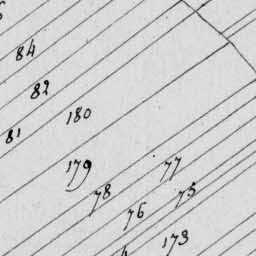 84
82
180
81
179
77
78
75
76
173